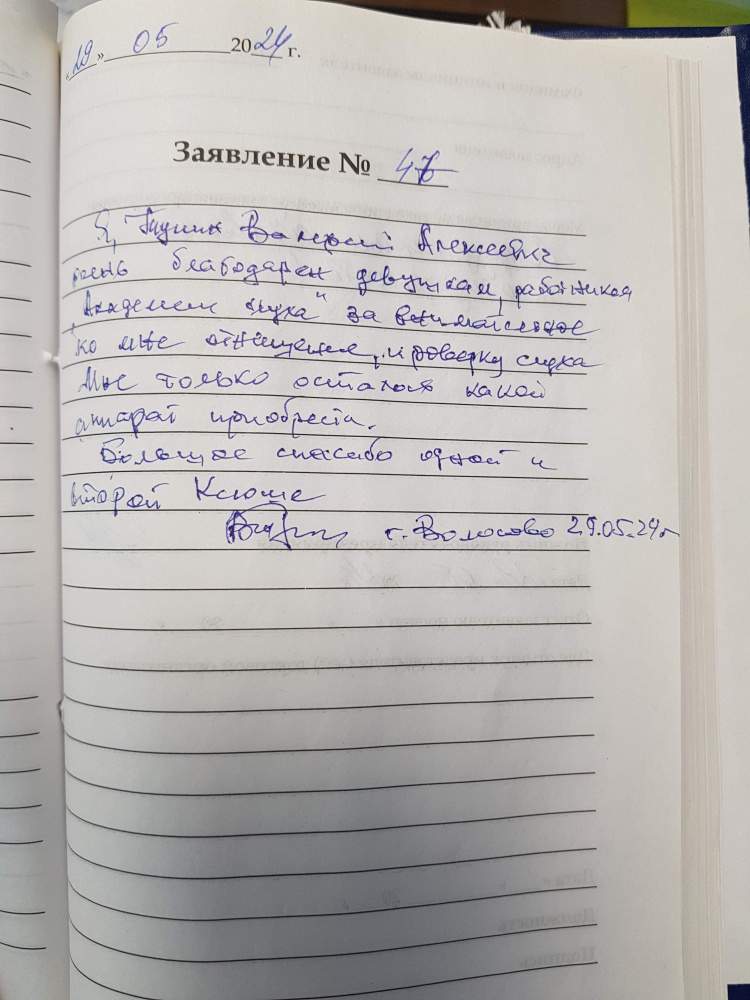 «29» 05 2024 г.
Заявление № 47
Я, Валерий Алексеевич
очень благодарен девушкам, работникам
"Академии слуха" за внимательное
ко мне отношение, проверку слуха
Мне только осталось какой
аппарат приобрести.
Большое спасибо одной и
второй Ксюше
г. Волосово 29.05.24г